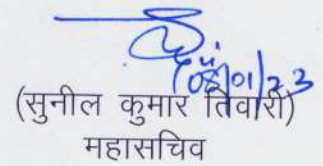 08/01/23
(सुनील कुमार तिवारी)
महासचिव